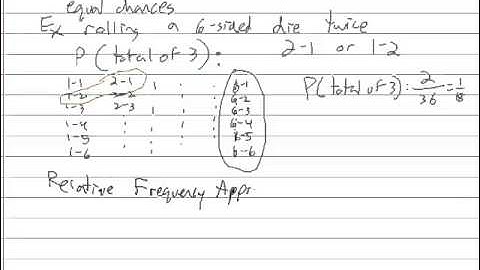 equal chances
Ex rolling a 6-sided die twice
P(total of 3): 2-1 or 1-2
1-1 2-1 6-1
1-2 2-2 6-2
1-3 2-3 6-3
1-4 6-4
1-5 6-5
1-6 6-6
P(total of 3): 2/36 = 1/18
Relative Frequency Appr